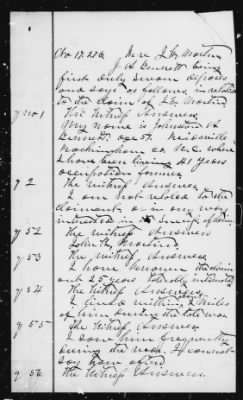 No 17.226 Mr J W Martin
J H Bennett being
first duly sworn deposes
and says as follows in relation
to the claim of J W Martin
q no 1 The Witness Answers
My name is Johnston H
Bennett, age 51. Reidsville
Rockingham co N.C. where
I have been living 41 years
occupation farmer
q 2 The witness Answers
I am not related to the
claimant, or in any way
interested in
q 52 The witness Answers
John W Martin
q 53 The witness Answers
I have known the claim
ant 25 years tolerably intimately
q 54 The Witness Answers
I lived within 2 miles
of him during the late war
q 55 The Witness Answers
I saw him frequently
during the war. I cannot
say how often
q 56 The Witness Answers